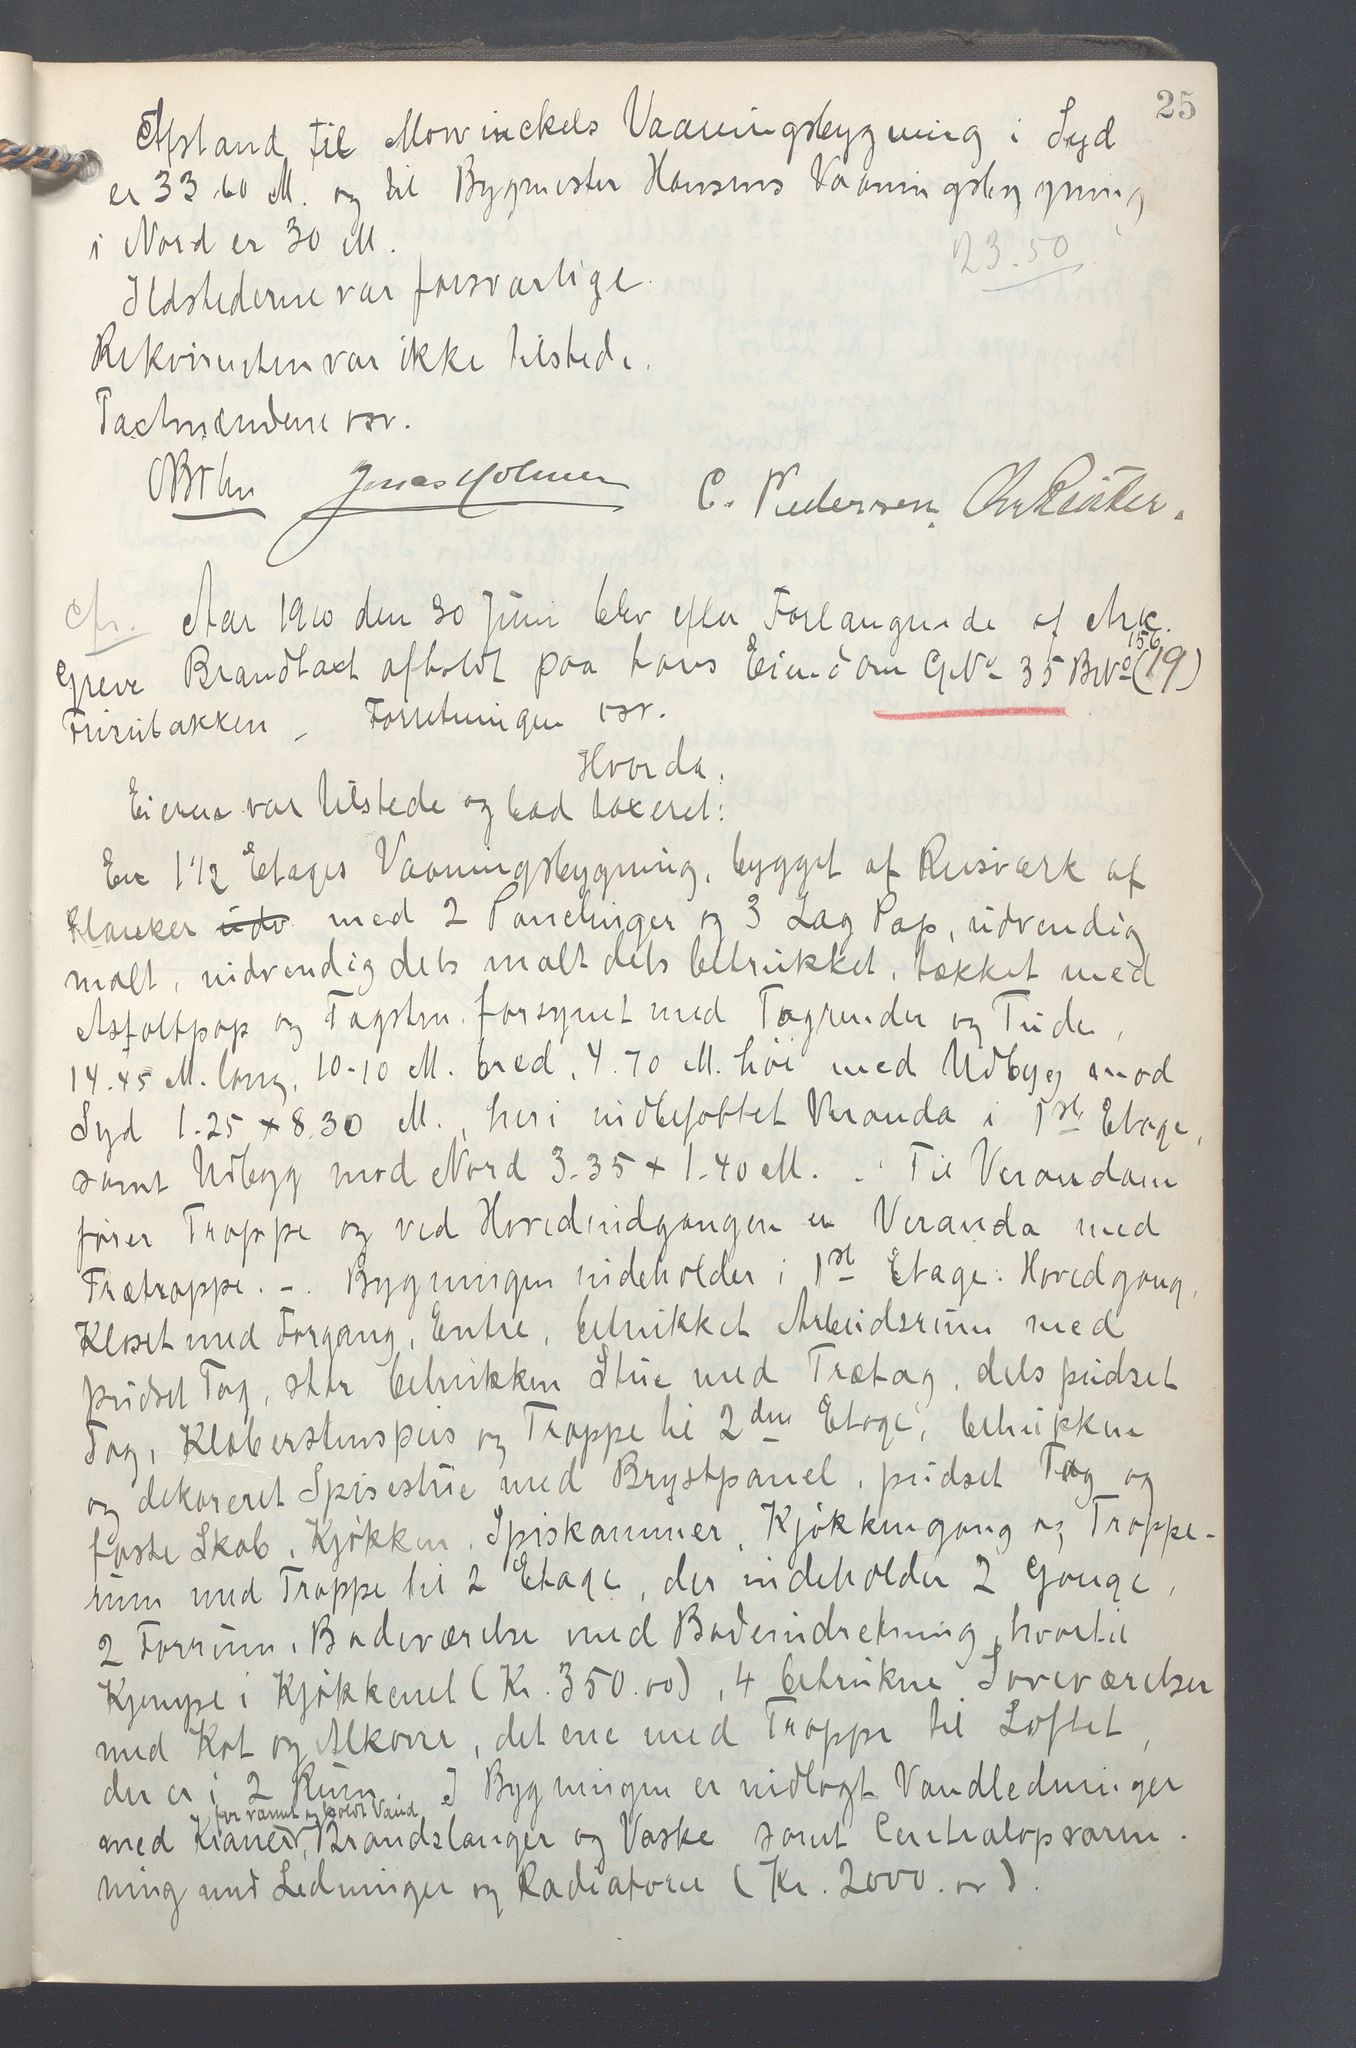 25
Afstand til Mowinckels Vaaningsbygning i Syd
er 33.60 M. og til Bygmester Hansens Vaaningsbygning
i Nord er 30 M.
23.50
Ildstederne var forsvarlige.
Rekvirenten var ikke tilstede.
Taxtmændene osv.
Jonas Holmen C. Pedersen.
Aar 1910 den 30 Juni blev efter Forlangende af Ark.
Greve Brandtaxt afholdt paa hans Eiendom GNo 35 BNo 156 (19)
Forretningen osv.
Hvorda.
Eieren var tilstede og bad taxeret:
En 1 1/2 Etages Vaaningsbygning, bygget af Reisværk af
Planker udv med 2 Panelinger og 3 Lag Pap, udvendig
malt, indvendig dels malt dels betrukket, tækket med
Asfaltpap og Tagsten, forsynet med Tagrender og Tude,
14.45 M. lang, 10.10 M. bred, 4.70 M. høi med Udbyg mod
Syd 1.25 x 8.30 M., heri indbefattet Veranda i 1ste Etage,
samt Udbyg mod Nord 3.35 x 1.40 M. . Til Verandaen
fører Trappe og ved Hovedindgangen en Veranda med
Trætrappe. -. Bygningen indeholder i 1ste Etage: Hovedgang,
Kloset med Forgang, Entre, betrukket Arbeidsrum med
pudset Tag, stor betrukken Stue med Trætag, dels pudset
Tag, Kleberstenspeis og Trappe til 2den Etage, betrukken
og dekoreret Spisestue med Brystpanel, pudset Tag og
faste Skab, Kjøkken, Spiskammer, Kjøkkengang og Trappe-
rum med Trappe til 2 Etage, der indeholder 2 Gange,
2 Forrum, Badeværelse med Badeindretning, hvortil
Kjempe i Kjøkkenet (Kr. 350.00), 4 betrukne Soveværelser
med Kot og Alkove, det ene med Trappe til Loftet,
der er i 2 Rum. I Bygningen er indlagt Vandledninger
med Kraner for varmt og koldt Vand, Brandslanger og Vaske samt Centralopvarm-
ning med Ledninger og Radiatorer (Kr. 2000.00).